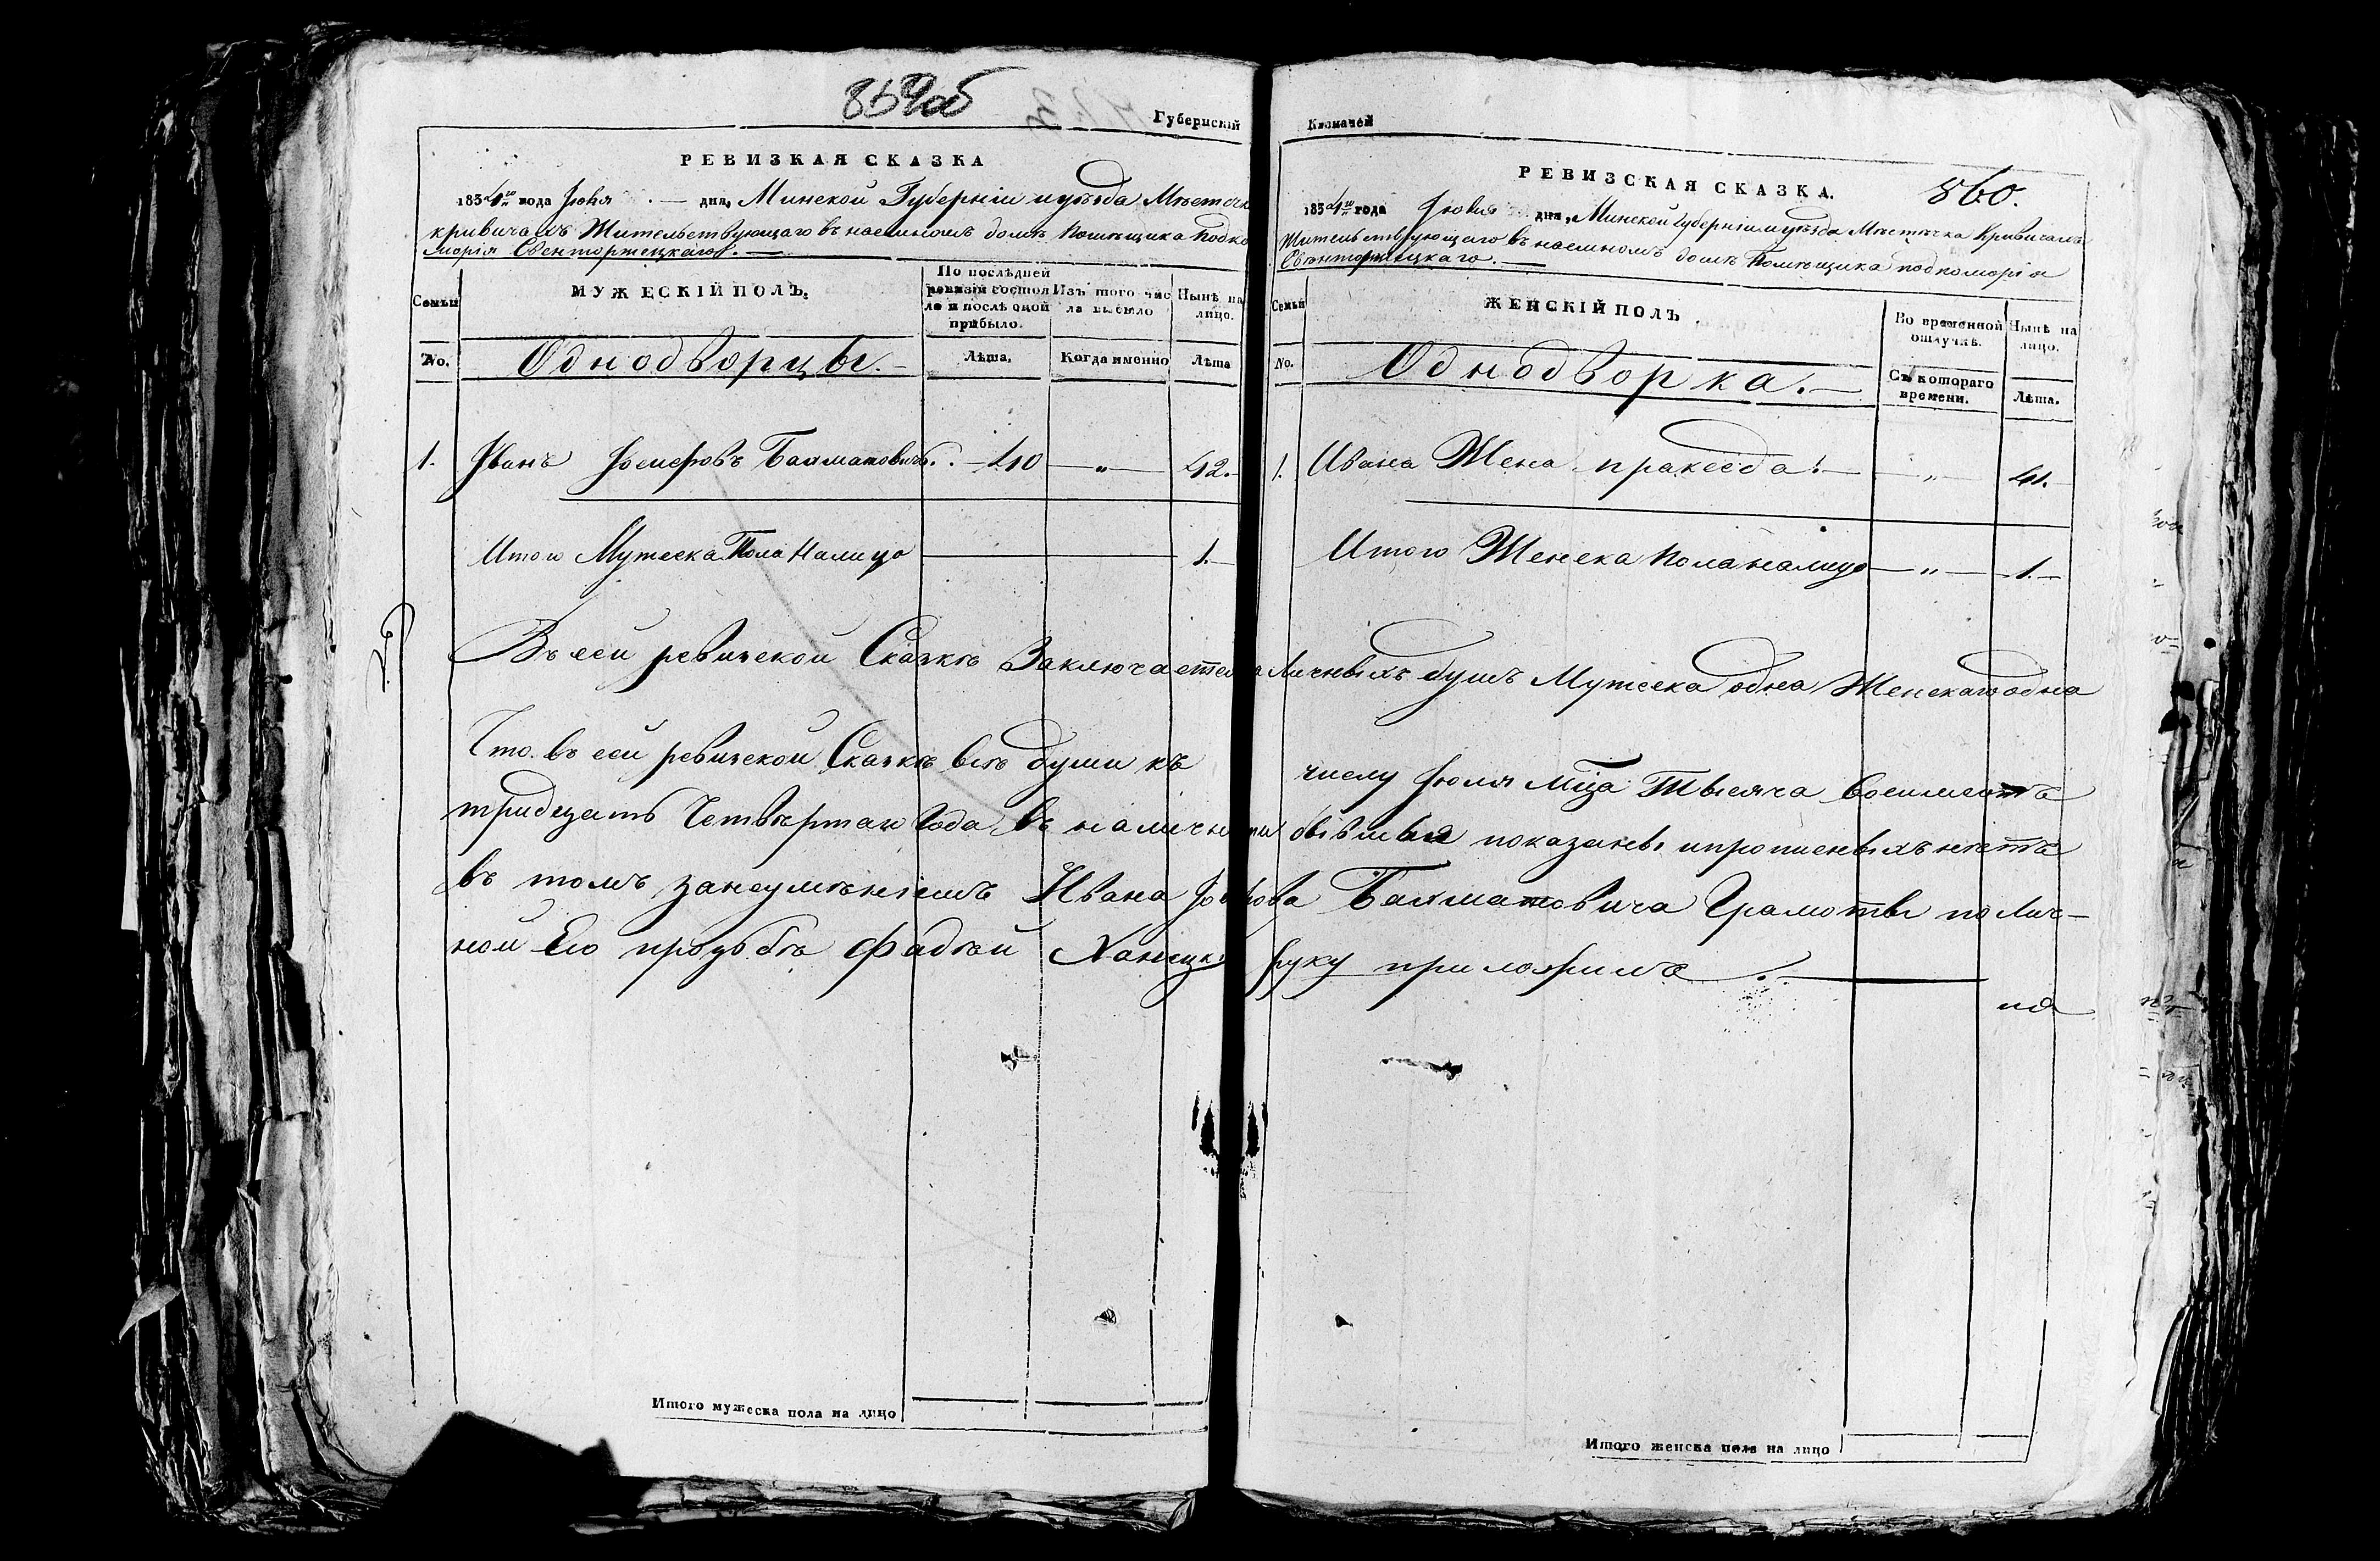 859об
Губернскій
РЕВИЗКАЯ СКАЗКА
1834го года Іюня — дня, Минской Губерніи иуѣзда Мѣстечк
кривичахъ Жительствующаго въ наемномъ домѣ Помѣщика Подко
морія Свенторжецкаго. —
Семьи
МУЖЕСКІЙ ПОЛЪ.
По послѣдней ревизіи состояло и послѣ оной прибыло.
Изъ того числа выбыло
Нынѣ на лицо.
No.
Однодворцы.
Лѣта.
Когда именно
Лѣта
1. Иванъ Іосифовъ Бахматовичь. 40 — „ — 42.
Итого Мужеска Пола Налицо 1.
Въ сей ревизской Сказкѣ Заключается
Что въ сей ревизской Сказкѣ всѣ души къ
тридцать Четвертаго Года въ
въ томъ занеумѣніемъ Ивана
ной Его прозьбѣ Фадѣй
Итого мужеска пола на лицо
Казначей
РЕВИЗСКАЯ СКАЗКА.
860.
1834го года Іюня дня, Минской Губерніи иуѣзда Мѣстечка Кривичахъ
Жительствующаго въ наемномъ домѣ Помѣщика подкоморія
Свѣнторжецкаго. —
Семьи
ЖЕНСКІЙ ПОЛЪ.
Во временной отлучкѣ.
Нынѣ на лицо.
No.
Однодворка. —
Съ котораго времени.
Лѣта.
1. Ивана Жена праксѣда. — „ — 41.
Итого Женска пола налицо — „ — 1. —
личныхъ душъ Мужеска одна Женскаго одна
числу Іюля Мца Тысяча Восимсотъ
показаны ипрописныхъ нѣтъ
Бахматовича Грамоты по лич-
руку приложилъ.
на
Итого женска пола на лицо